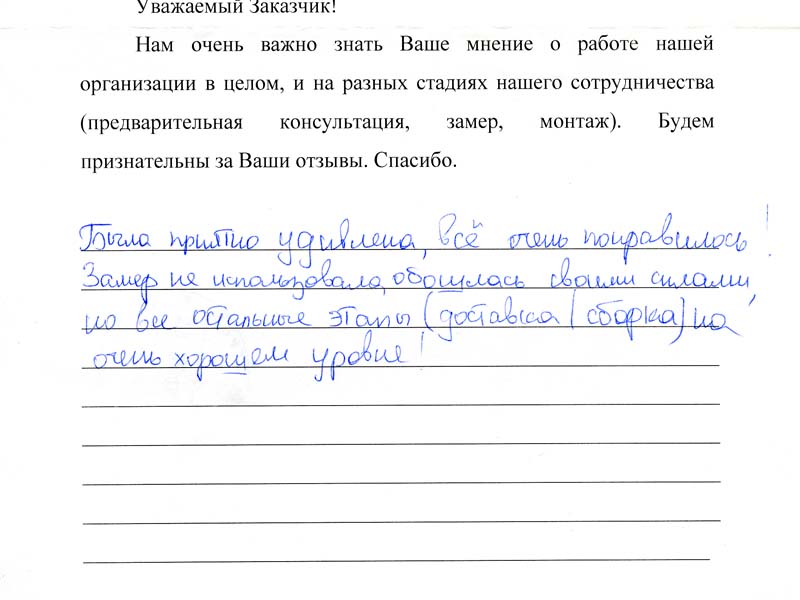 Уважаемый Заказчик!
Нам очень важно знать Ваше мнение о работе нашей
организации в целом, и на разных стадиях нашего сотрудничества
(предварительная консультация, замер, монтаж). Будем
признательны за Ваши отзывы. Спасибо.
Была приятно удивлена, всё очень понравилось!
Замер не использовала, обошлась своими силами,
но все остальные этапы (доставка/сборка) на
очень хорошем уровне!